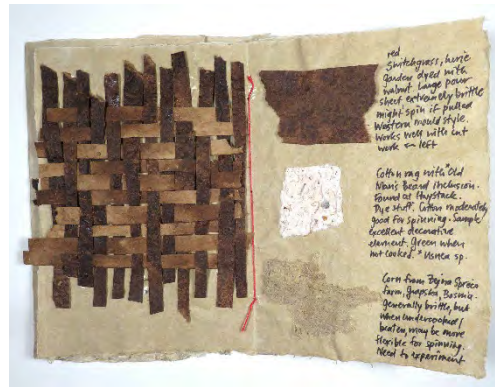 red
Switchgrass, home
garden dyed with
walnut large pour
sheet extremely brittle
might spin if pulled
Western mould style.
Works well with cut
work on left
Cotton rag with "Old
Man's Beard Inclusion.
Found at Haystack.
Dye stuff. Cotton moderately
good for spinning. Sample
excellent decorative
element. Green when
not cooked. * Usnea sp.
Corn from
farm, Bosnia -
generally brittle, but
when undercooked/
beaten, may be more
flexible for spinning.
Need to experiment